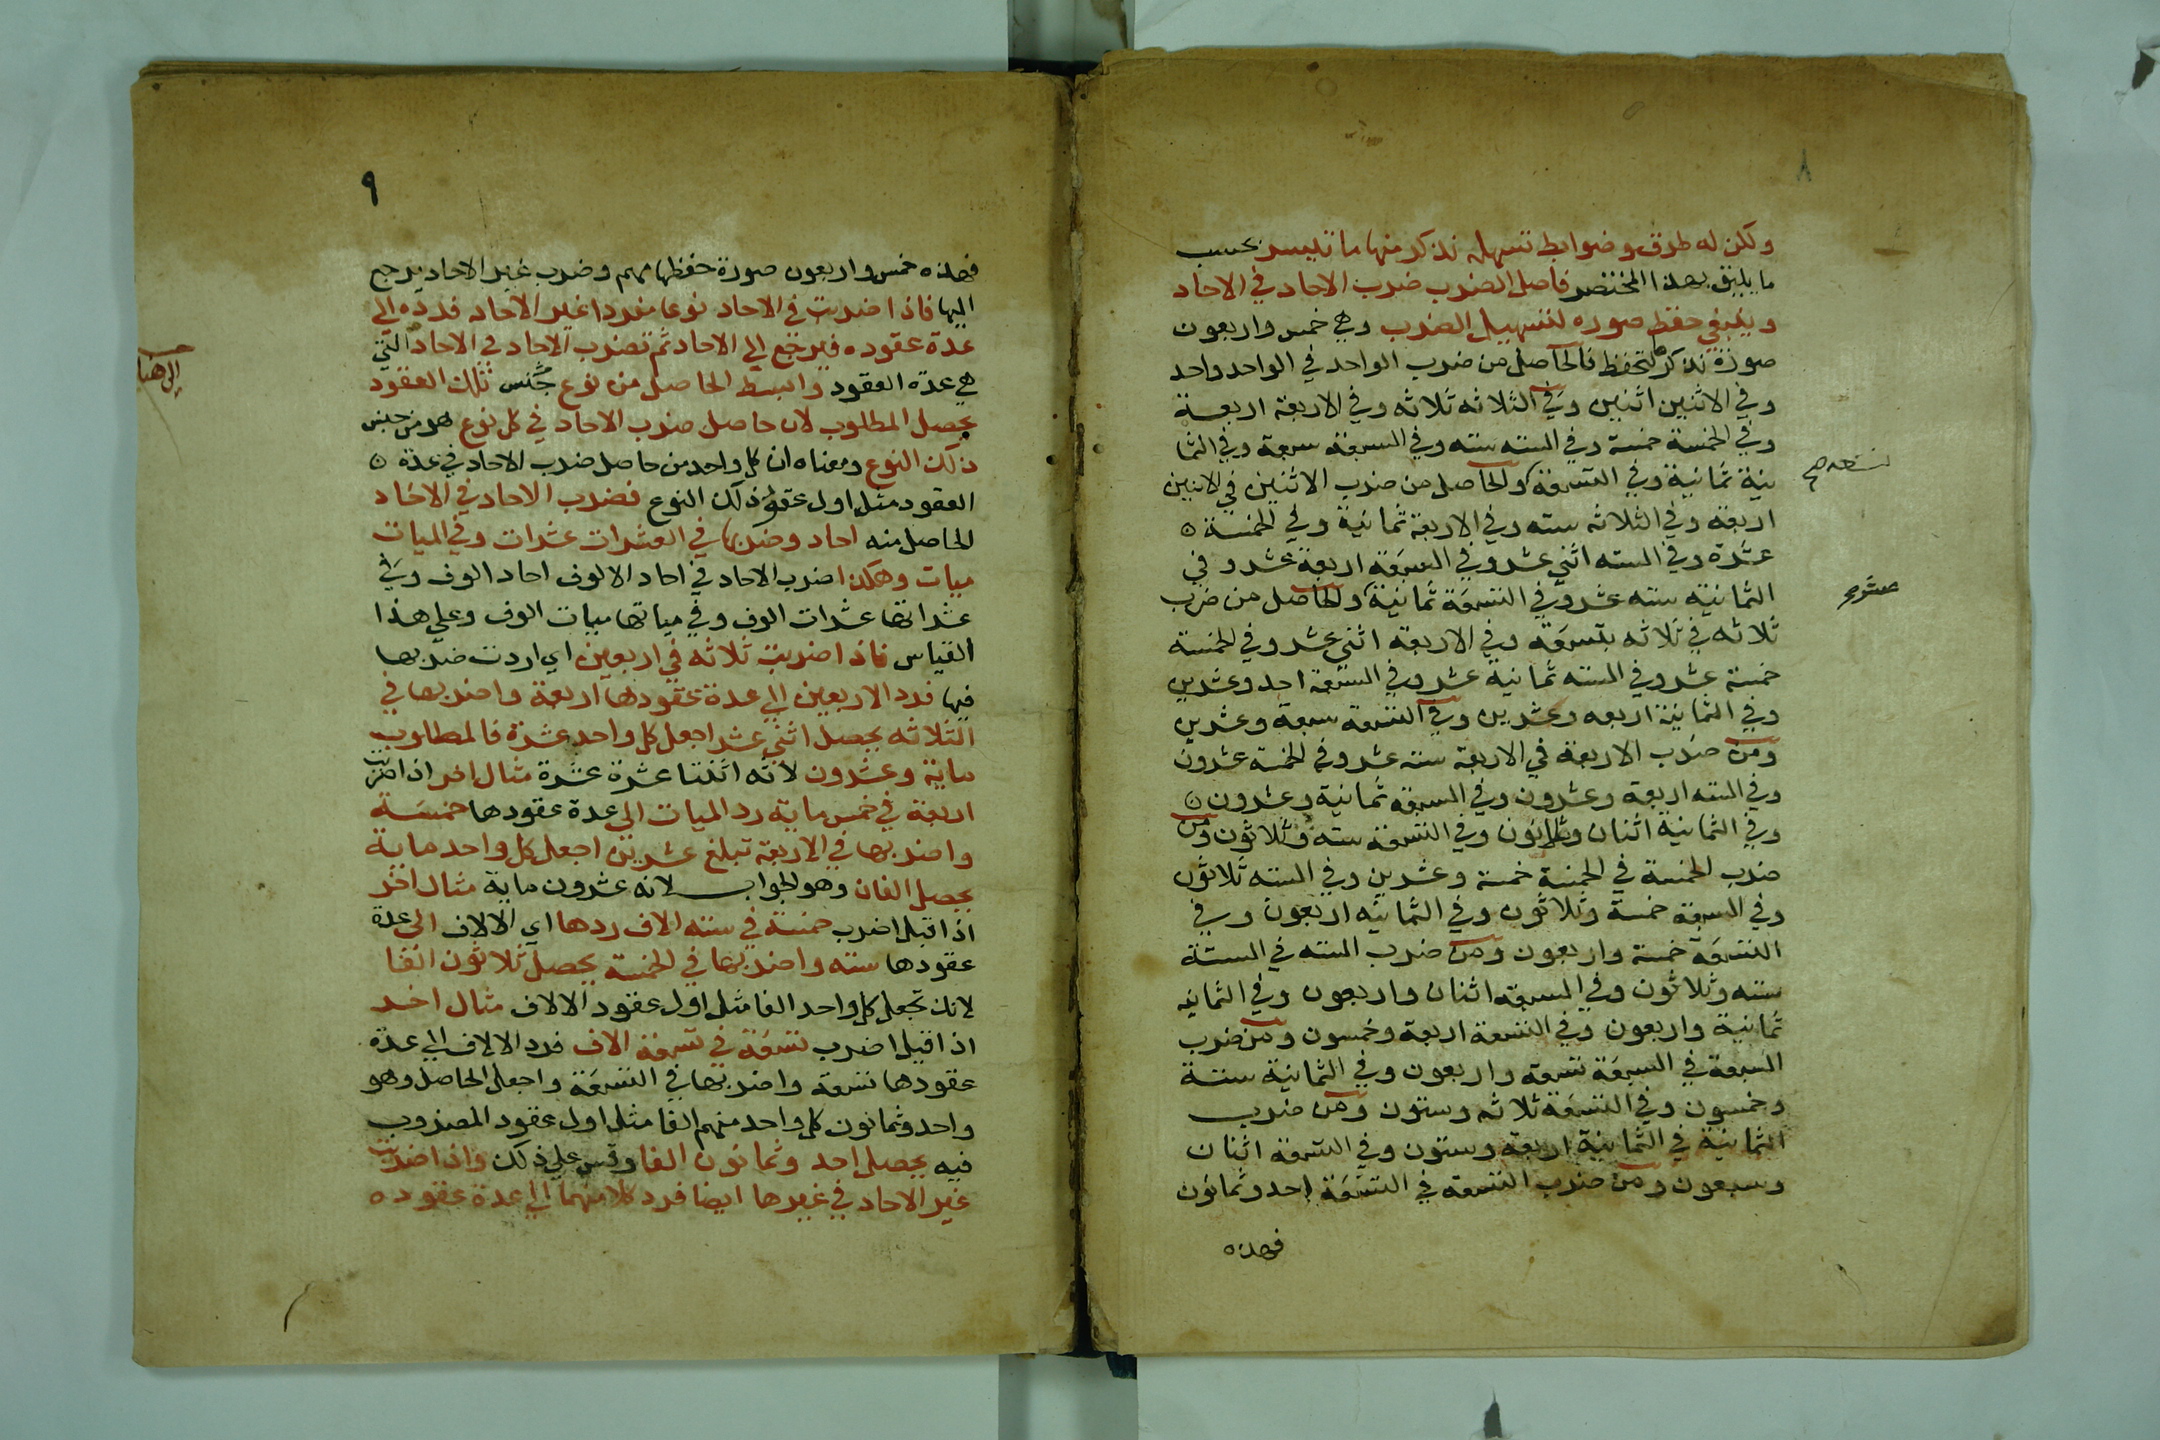 ٨
ولكن له طرق وضوابط تسهله نذكر منها ما تيسر بحسب
ما يليق بهذا المختصر فاصل الضرب ضرب الاحاد في الاحاد
وينبغي حفظ صوره لتسهيل الضرب وهي خمس واربعون
صورة نذكر لتحفظ فالحاصل من ضرب الواحد في الواحد واحد
وفي الاثنين اثنين وفي الثلاثه ثلاثه وفي الاربعة اربعة
وفي الخمسة خمسة وفي السته سته وفي السبعة سبعة وفي الثما
نية ثمانية وفي التسعة والحاصل من ضرب الاثنين في الاثنين
تسعه صح
اربعة وفي الثلاثه سته وفي الاربعة ثمانية وفي الخمسة ه
عشرة وفي السته اثني عشر وفي السبعة اربعة عشر وفي
الثمانيه سته عشر وفي التسعة ثمانية والحاصل من ضرب
عشر صح
ثلاثه في ثلاثه بتسعة وفي الاربعه اثني عشر وفي الخمسة
خمسة عشر وفي السته ثمانية عشر وفي السبعة احد وعشرين
وفي الثمانية اربعه وعشرين وفي التسعة سبعة وعشرين
ومن ضرب الاربعة في الاربعة سته عشر وفي الخمسة عشرون
وفي السته اربعة وعشرون وفي السبعة ثمانية وعشرون ه
وفي الثمانية اثنان وثلاثون وفي التسعة ستة وثلاثون ومن
ضرب الخمسة في الخمسة خمسة وعشرين وفي السته ثلاثون
وفي السبعة خمسة وثلاثون وفي الثمانيه اربعون وفي
التسعة خمسة واربعون ومن ضرب السته في الستة
سته وثلاثون وفي السبعة اثنان واربعون وفي الثمانيه
ثمانية واربعون وفي التسعة اربعة وخمسون ومن ضرب
السبعة في السبعة تسعة واربعون وفي الثمانية ستة
وخمسون وفي التسعة ثلاثه وستون ومن ضرب
الثمانية في الثمانية اربعة وستون وفي التسعة اثنان
وسبعون ومن ضرب التسعة في التسعة احد وثمانون
فهذه
٩
فهذه خمس واربعون صورة حفظها مهم وضرب غير الاحاد يرجع
اليها فاذا ضربت في الاحاد نوعا مفردا غير الاحاد فرده الى
عدة عقوده فيرجع الي الاحاد ثم تضرب الاحاد في الاحاد التي
هي عدة العقود وابسط الحاصل من نوع جنس تلك العقود
الى هنا
يحصل المطلوب لان حاصل ضرب الاحاد في كل نوع هو من جنس
ذلك النوع ومعناه ان كل واحد من حاصل ضرب الاحاد في عدة ه
العقود مثل اول عقود ذلك النوع فضرب الاحاد في الاحاد
الحاصل منه احاد وضربها في العشرات عشرات وفي الميات
ميات وهكذا ضرب الاحاد في احاد الالوف احاد الوف وفي
عشراتها عشرات الوف وفي مياتها ميات الوف وعلي هذا
القياس فاذا ضربت ثلاثه في اربعين اي اردت ضربها
فيها فرد الاربعين الي عدة عقودها اربعة واضربها في
الثلاثه يحصل اثني عشر اجعل كل واحد عشرة فالمطلوب
ماية وعشرون لانه اثنتا عشرة عشرة مثال اخر اذا ضربت
اربعة في خمس ماية رد الميات الى عدة عقودها خمسة
واضربها في الاربعة تبلغ عشرين اجعل كل واحد ماية
يحصل الفان وهو الجواب لانه عشرون ماية مثال اخر
اذا قيل اضرب خمسة في سته الاف ردها اي الالاف الى عدة
عقودها سته واضربها في الخمسة يحصل ثلاثون الفا
لانك تجعل كل واحد الفا مثل اول عقود الالاف مثال اخر
اذا قيل اضرب تسعة في تسعة الاف فرد الالاف الي عدة
عقودها تسعة واضربها في التسعة واجعل الحاصل وهو
واحد وثمانون كل واحد منهم الفا مثل اول عقود المضروب
فيه يحصل احد وثمانون الفا وقس علي ذلك واذا ضربت
غير الاحاد في غيرها ايضا فرد كلا منهما الي عدة عقوده